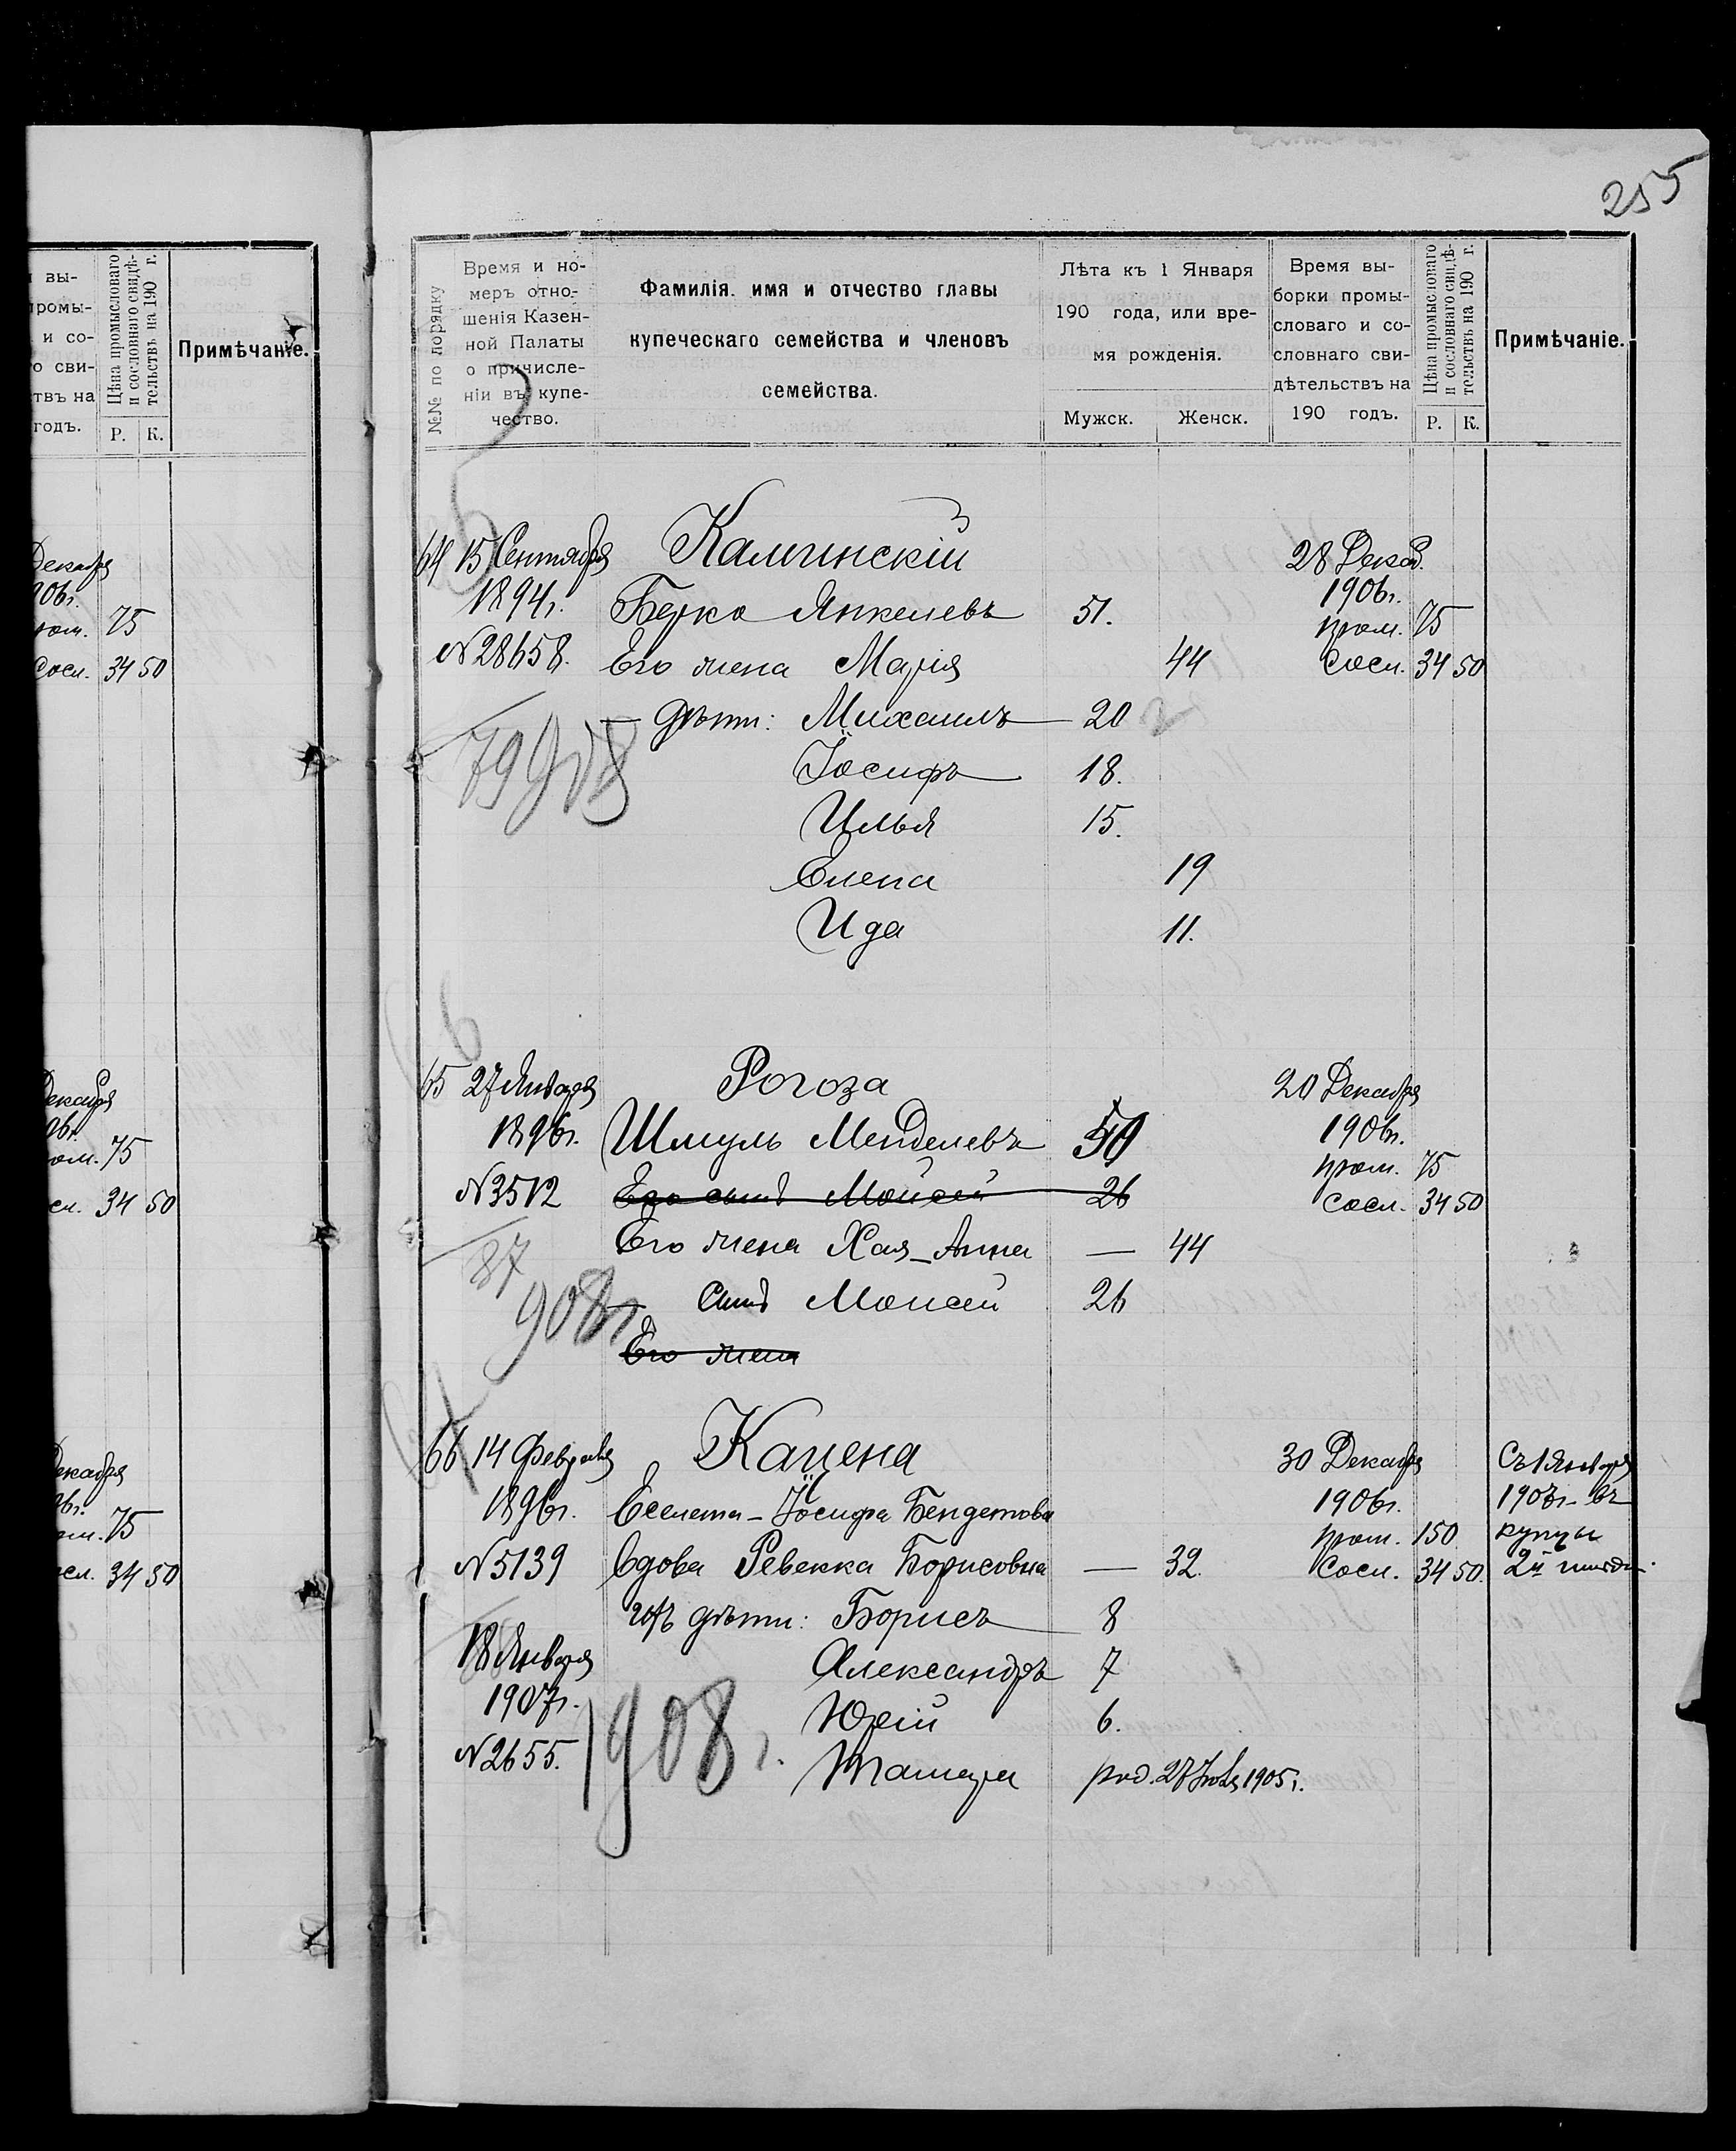 255
вы-
промы-
и со-
о сви-
твъ на
годъ.
Цѣна промысловаго
и сословнаго свидѣ-
тельствъ на 190 г.
Р. К.
Примѣчаніе.
Декабря
906г.
пром. 75
Сосл. 34 50
Декабря
06г.
ом. 75
сл. 34 50
Декабря
06г.
ом. 75
осл. 34 50
№№ по порядку
Время и но-
меръ отно-
шенія Казен-
ной Палаты
о причисле-
ніи въ купе-
чество.
Фамилія. имя и отчество главы
купеческаго семейства и членовъ
семейства.
Лѣта къ 1 Января
190 года, или вре-
мя рожденія.
Мужск. Женск.
Время вы-
борки промы-
словаго и со-
словнаго сви-
дѣтельствъ на
190 годъ.
Цѣна промысловаго
и сословнаго свидѣ-
тельствъ на 190 г.
Р. К.
Примѣчаніе.
64 15 Сентября Калминскій 28 Декаб.
1894г. Берко Янкелевъ 51. 1906г.
пром. 75
№28658. Его жена Марія 44 Сосл. 34 50
— Дѣти: Михаилъ 20
Іосифъ 18.
79 908
Илья 15.
Елена 19
Ида 11.
65 27 Января Рогоза 20 Декабря
1896г. Шмуль Менделевъ 50 1906г.
пром. 75
№3512 Его сынъ Моисей 26 Сосл. 34 50
Его жена Хая-Анна — 44
87
908г. — Сынъ Моисей 26
Его жена
66 14 Февраля Кацена 30 Декабря Съ 1 Января
1896г. Еселета-Іосифа Бендетова 1906г. 1907г. въ
пром. 150 купцы
№5139 Вдова Ревекка Борисовна — 32. Сосл. 34 50. 2й гильд.
ихъ дѣти: Борисъ 8
18 Января Александръ 7
1907г. Юрій 6.
1908г.
№2655. Тамара род. 27 Іюля 1905г.